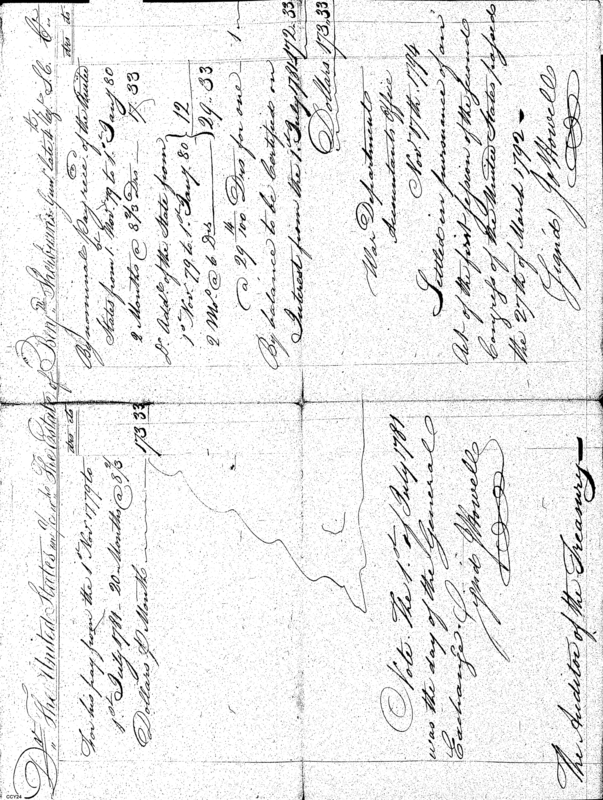 Dr. The United States in acct. with The Estate of Benjn. Gunr. late 4th Regt. Cr.
drs cts
For his pay from the 1st Novr. 1779 to
1st July 1781 - 20 Months @ 8⅔
Dollars pr Month 173 33
Note. The 1st. of July 1781
was the day of the General
Exchange.
Sign'd J Howell
The Auditor of the Treasury
drs cts
By nominal pay recd. of the United
States from 1. Novr. 79 to 1st Jany 80
2 Months @ 8⅔ Drs 17.33
Do Addl. of the State from
1st Novr. 79 to 1st Jany 80 } 12
2 Mos. @ 6 Drs
29.33
@ 29 100 Drs for one 1
By balance to be Certified on
Interest from the 1st July 1781 172.33
Dollars 173.33
War Department
Accountants Office
Novr. 17th. 1794
Settled in pursuance of an
Act of the first session of the second
Congress of the United States passed
the 27th of March 1792
Sign'd J Howell
CCY24